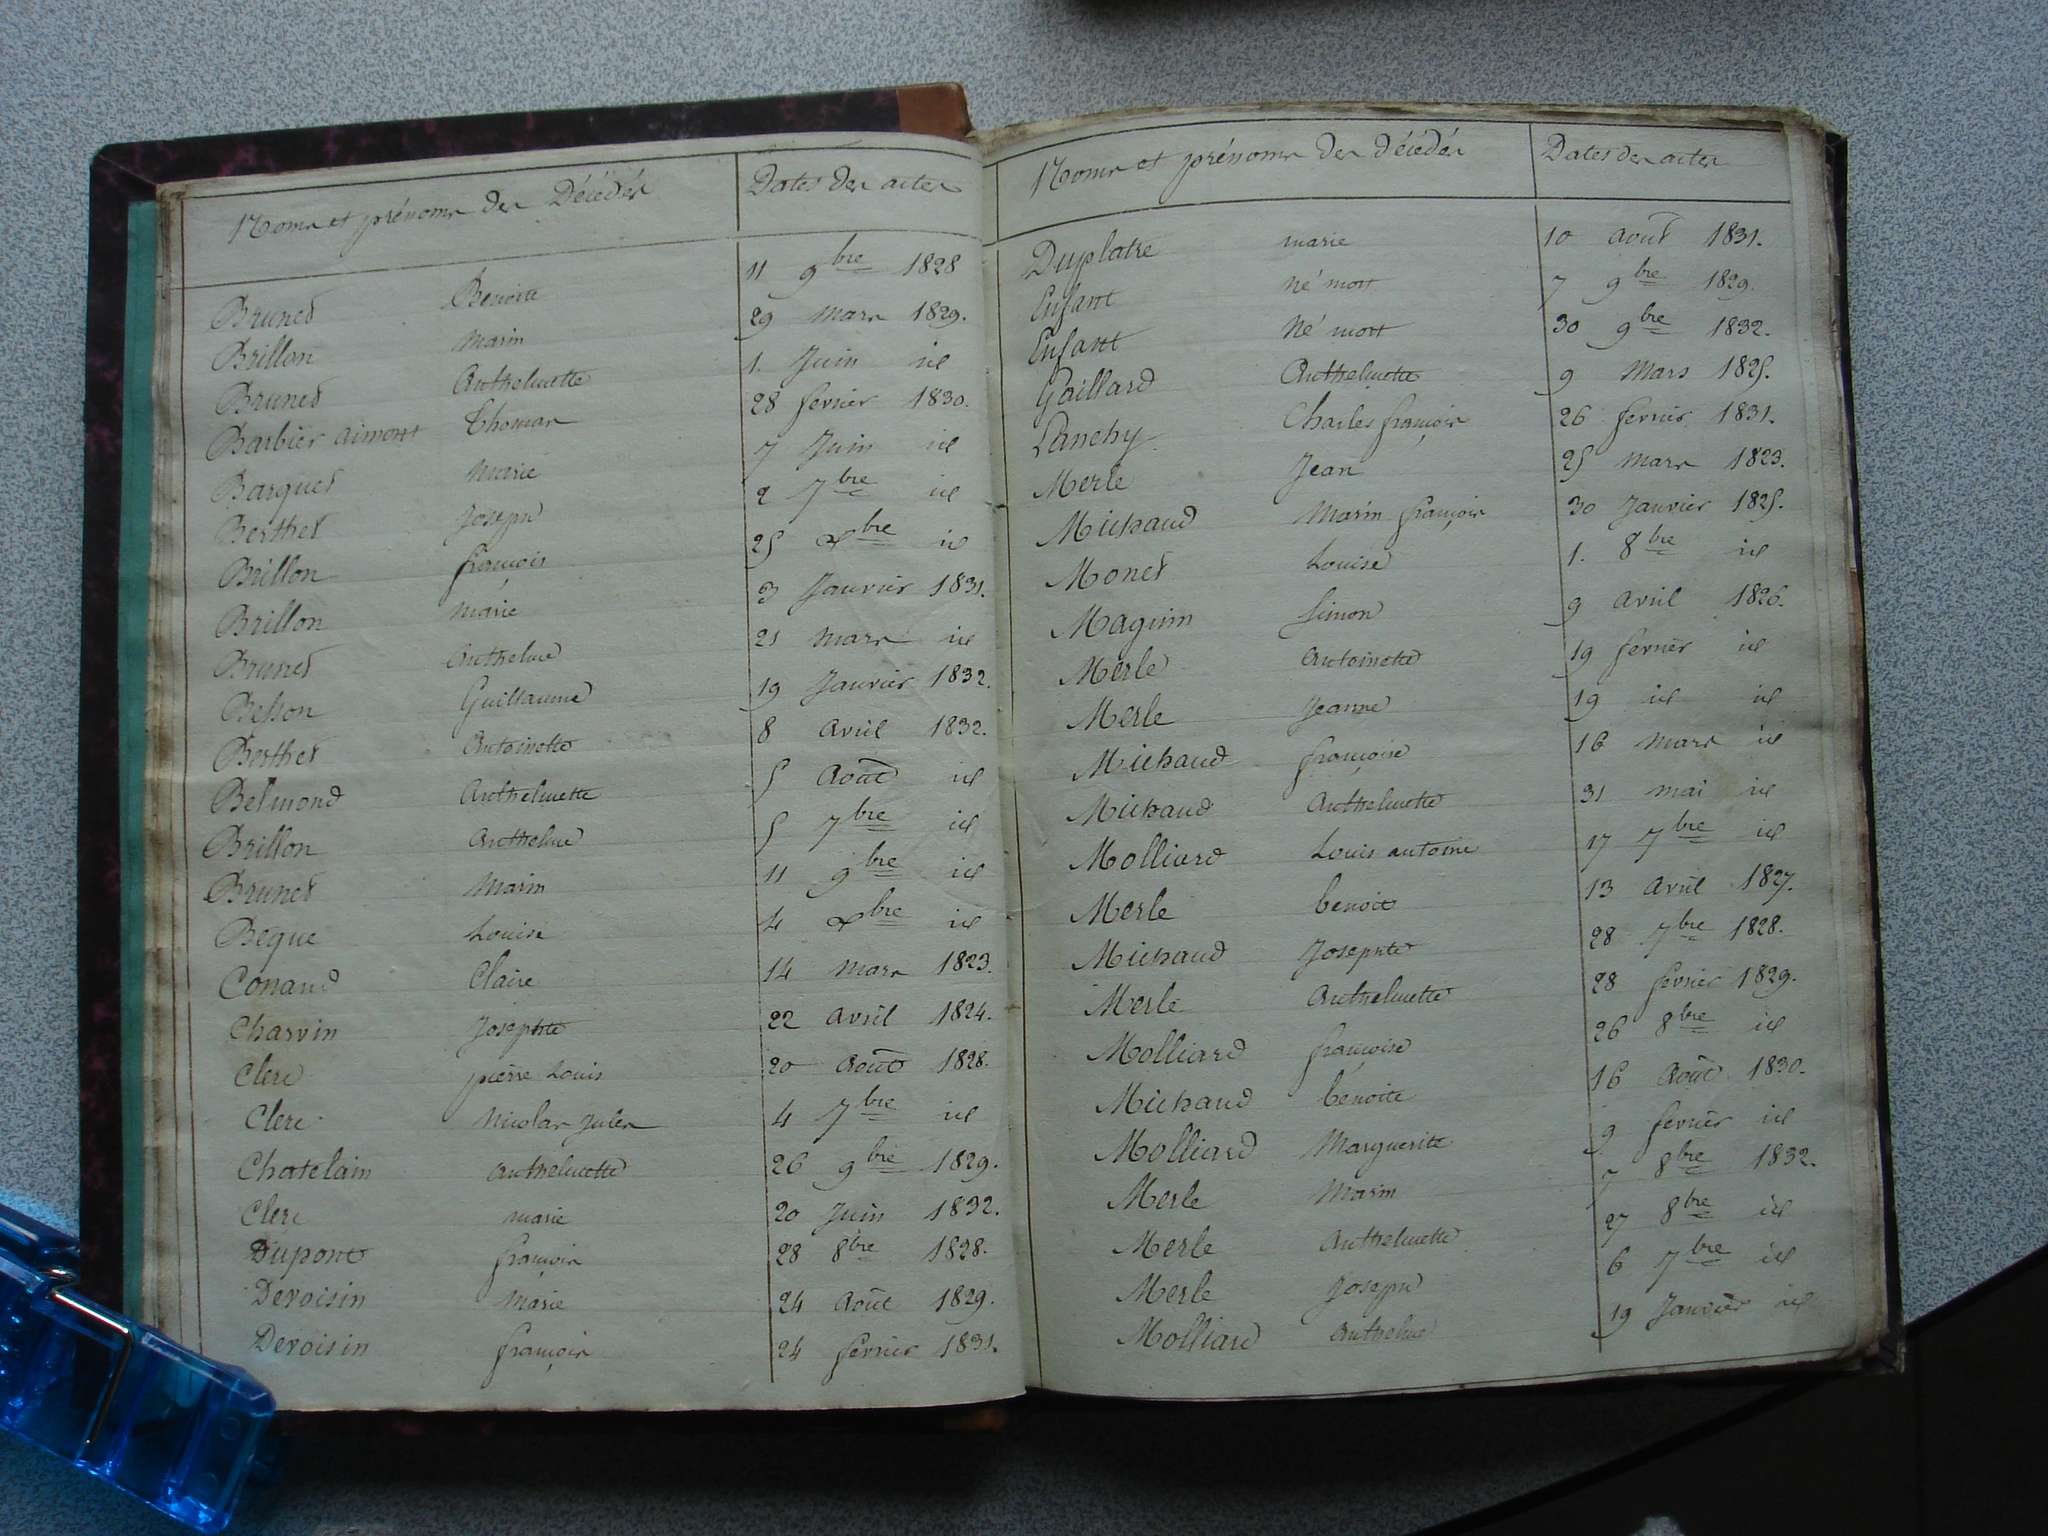 Noms et prénoms des Décédés Dates des actes
Brunet Benoite 11 9bre 1828
Brillon Marin 29 Mars 1829.
Brunet Anthelmette 1. Juin id
Barbier aimont Thomas 28 fevrier 1830.
Barquet Marie 7 Juin id
Berthet Joseph 2 7bre id
Brillon françois 25 Xbre id
Brillon Marie 3 Janvier 1831.
Brunet Anthelme 21 Mars id
Besson Guillaume 19 Janvier 1832.
Berthet Antoinette 8 Avril 1832.
Belmond Anthelmette 5 Août id
Brillon Anthelme 5 7bre id
Brunet Marin 11 9bre id
Beque Louise 4 Xbre id
Conand Claire 14 Mars 1823.
Charvin Josephte 22 Avril 1824.
Clerc pierre Louis 20 Août 1828.
Clerc Nicolas Jules 4 7bre id
Chatelain Anthelmette 26 9bre 1829.
Clerc marie 20 Juin 1832.
Dupont françois 28 8bre 1828.
Devoisin Marie 24 Août 1829.
Devoisin françois 24 fevrier 1831.
Noms et prénoms des Décédés Dates des actes
Duplatre marie 10 Août 1831.
Enfant né mort 7 9bre 1829.
Enfant Né mort 30 9bre 1832.
Gaillard Anthelmette 9 Mars 1825.
Lanchy Charles françois 26 fevrier 1831.
Merle Jean 25 Mars 1823.
Michaud Marin françois 30 Janvier 1825.
Monet Louise 1. 8bre id
Maguin Simon 9 Avril 1826.
Merle Antoinette 19 fevrier id
Merle Jeanne 19 id id
Michaud françoise 16 Mars id
Michaud Anthelmette 31 mai id
Molliard Louis antoine 17 7bre id
Merle benoit 13 Avril 1827.
Michaud Josephte 28 7bre 1828.
Merle Anthelmette 28 fevrier 1829.
Molliard françoise 26 8bre id
Michaud benoite 16 Août 1830.
Molliard Marguerite 9 fevrier id
Merle Marin 7 8bre 1832.
Merle Anthelmette 27 8bre id
Merle Joseph 6 7bre id
Molliard Anthelme 19 Janvier id